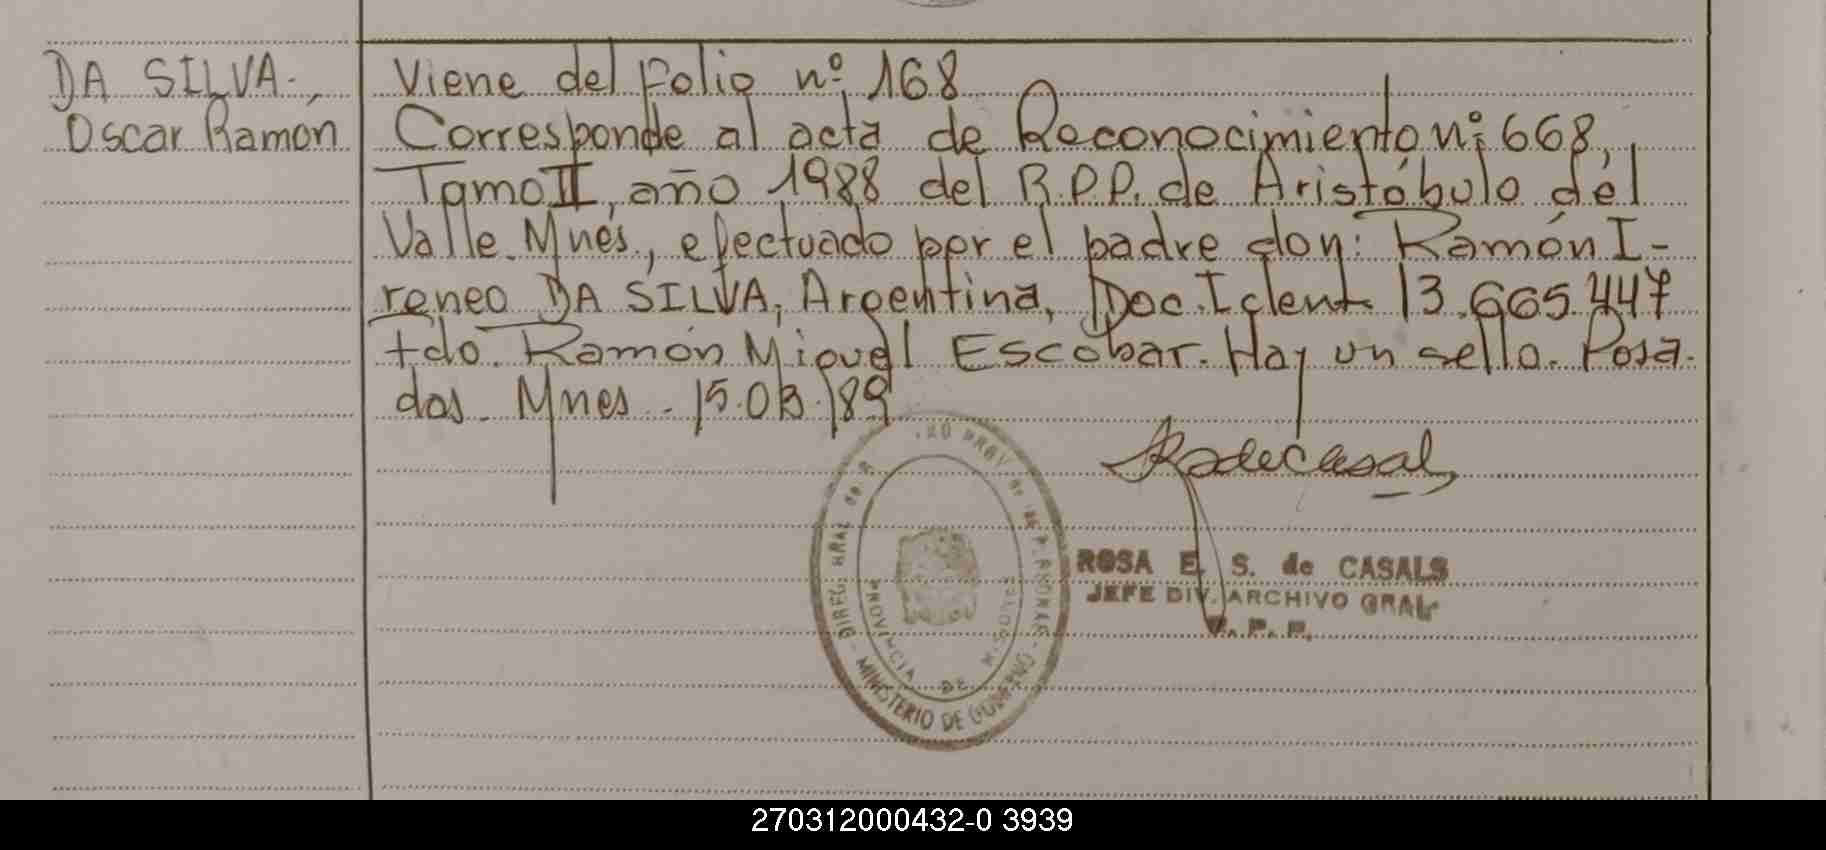 DA SILVA.
Oscar Ramón
Viene del folio nº 168
Corresponde al acta de Reconocimiento nº 668,
Tomo II, año 1988 del R.P.P. de Aristóbulo del
Valle. Mnes., efectuado por el padre don: Ramón I-
reneo DA SILVA, Argentina, Doc. Ident 13.665.447
fdo. Ramón Miguel Escobar. Hay un sello. Posa-
das. Mnes. 15.03.89
ROSA E. S. de CASALS
JEFE DIV. ARCHIVO GRAL.
PROVINCIA DE MISIONES
MINISTERIO DE GOBIERNO
270312000432-0 3939